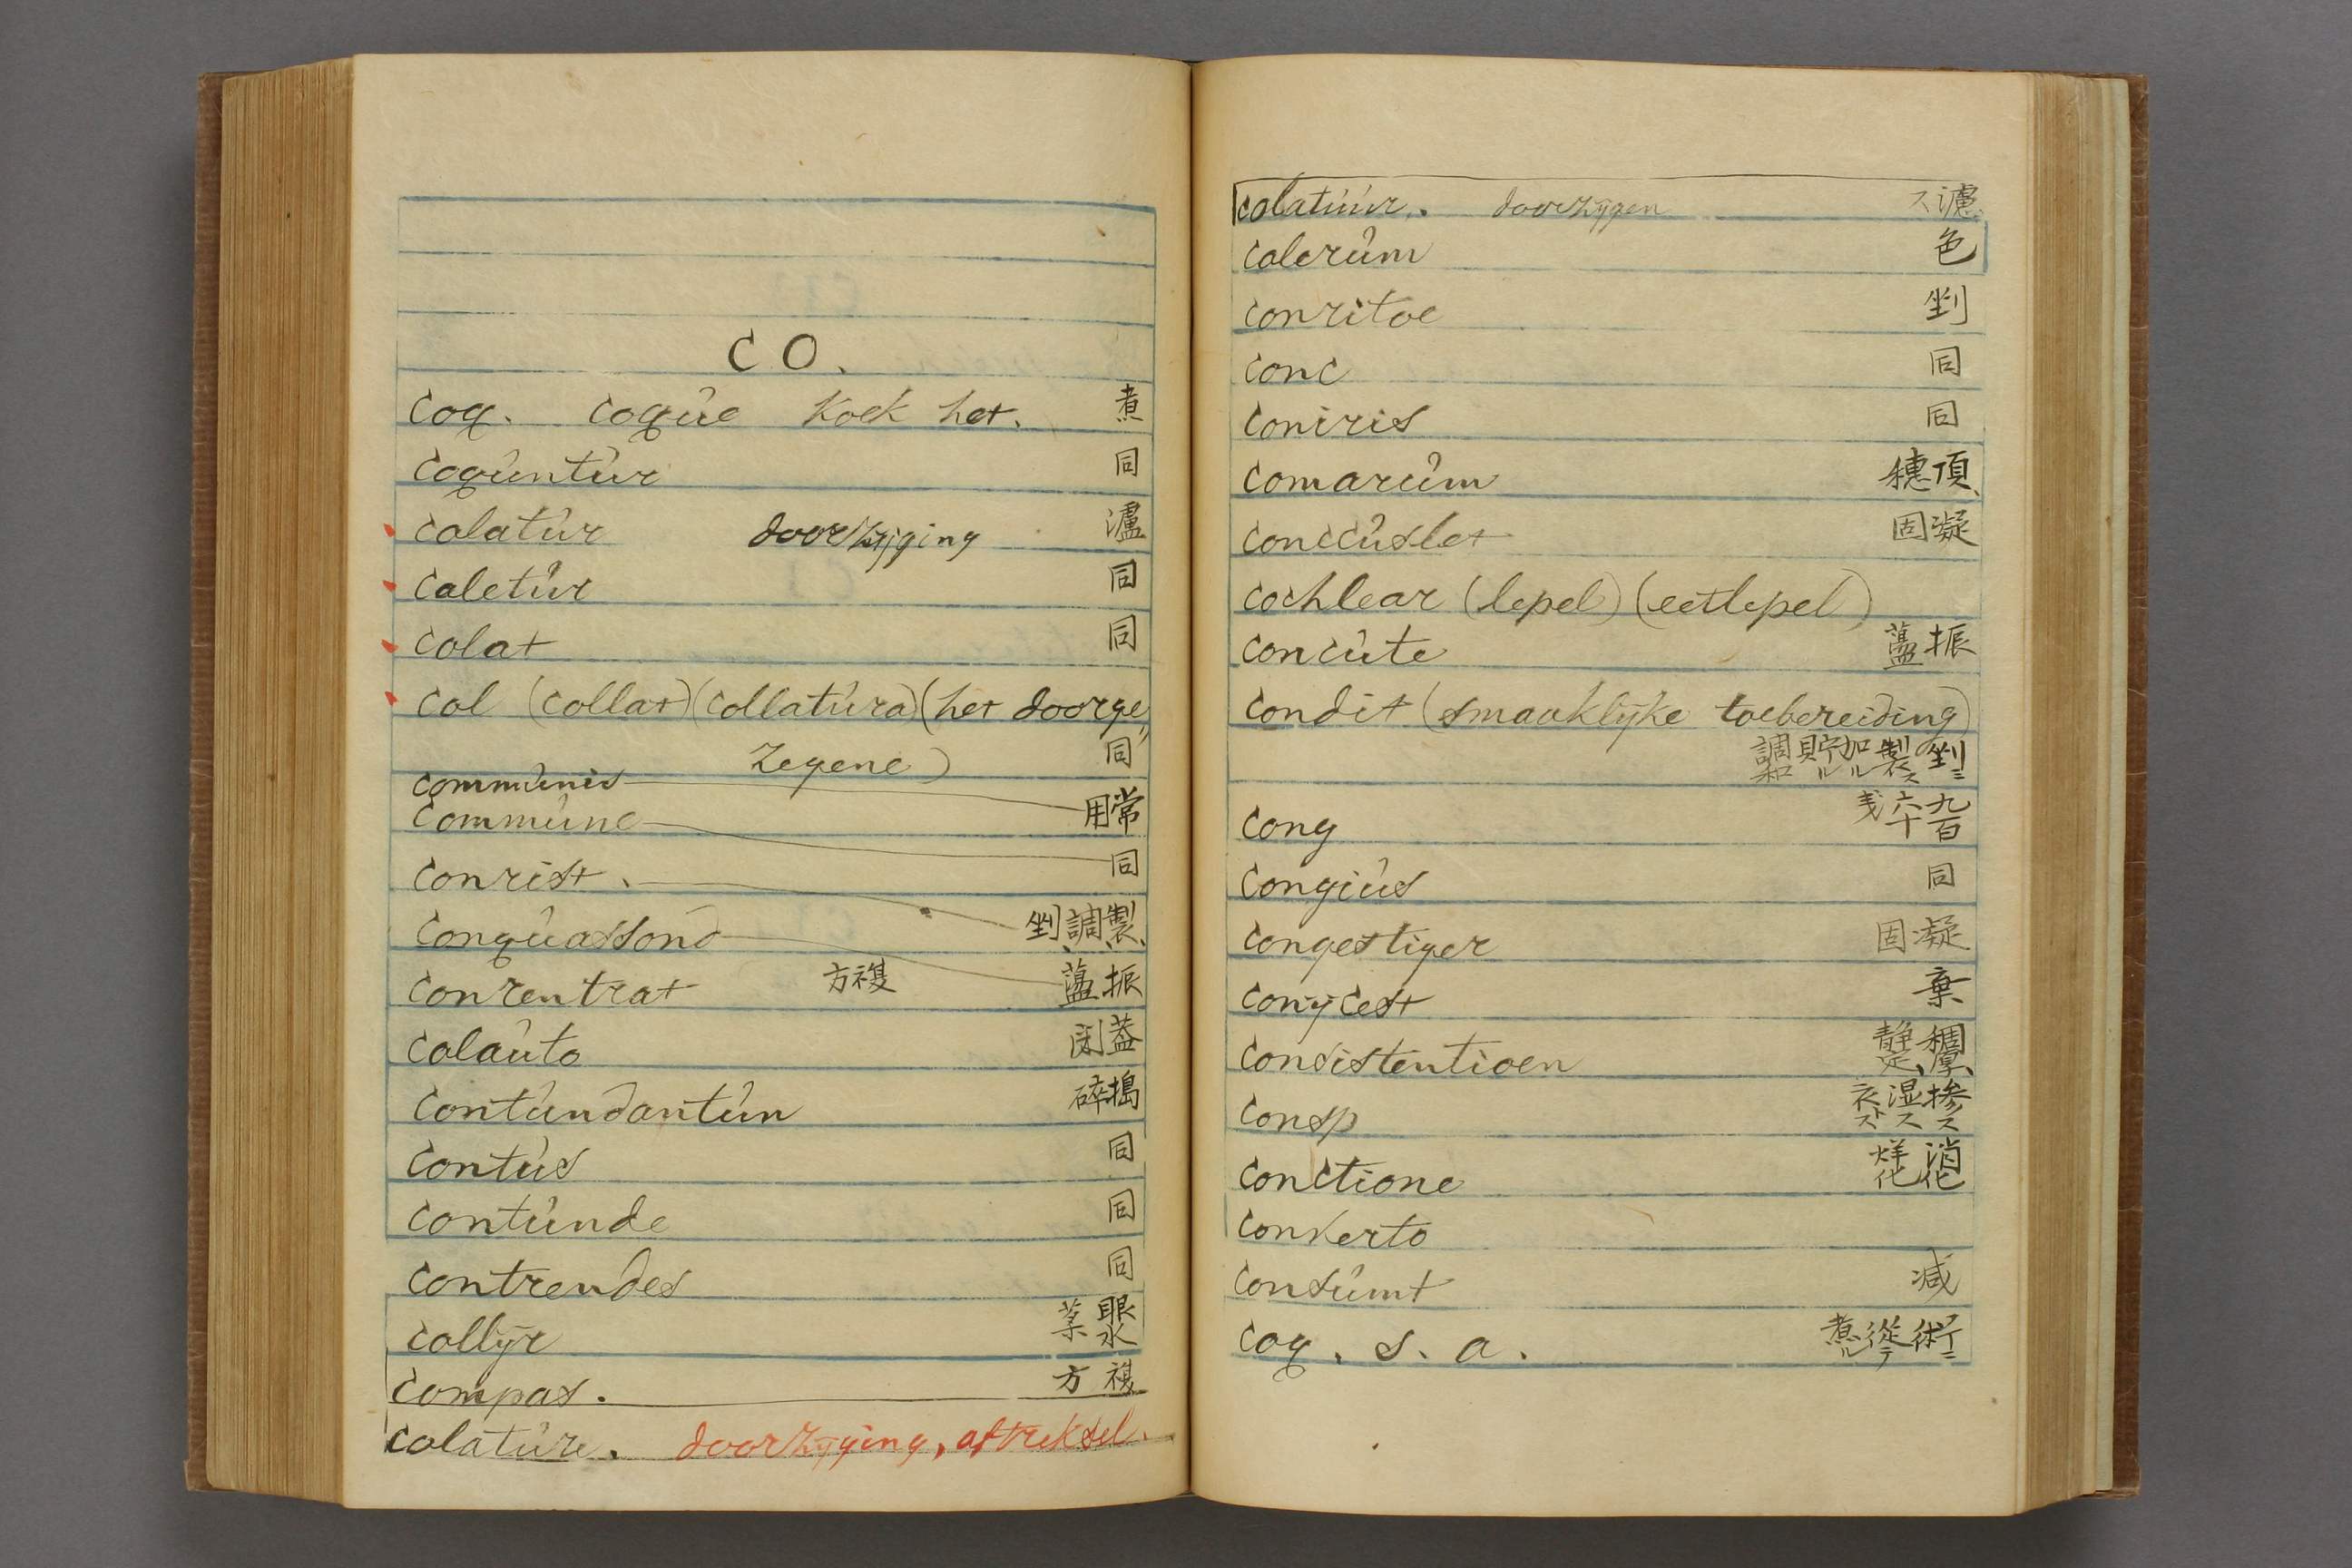 CO.
Coq. coqúe Kock het. 煮
Coqúntúr 同
Colatúr doorzÿging 瀘
Coletúr 同
Colat 同
Col (Collat) (Collatúra) (het doorge„
Zegene) 同
Commúnis 用常
Commúne 同
Conrist. 剉、調、製、
Conqúassond 蘯振
Conrentrat 方複
Colaúto 閉蓋
Contúndantúm 碎搗
Contús 同
Contúnde 同
Contrendes 同
Collÿr 眼水
Compas. 方複
Colatúre. doorzÿging, aftreksel.
Colatúúr. doorzÿgen ス濾
Colerúm 色
Conritoe 剉
Conc 同
Coniris 同
Comarúm 穗頂、
Conccúslet 固凝
Cochlear (lepel) (eetlepel)
Concúte 蘯振
Condit (smaaklÿke toebereiding)
調和 貯ル 加ル 製ス 剉ニ
Cong 九百六十
Congiús 同
Congestiger 固凝
Conÿcest 棄
Consistentioen 静定、稠厚、
Consp 衣ス 湿ス 摻ス
Conctione 烊化 消化
Conkerto
Consúmt 減
Coq. s. a. 煮ル 從テ 術ニ